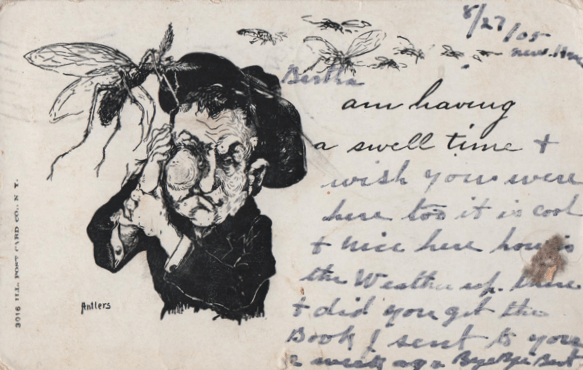 8/27/05
Bertha
am having
a swell time &
wish you were
here too it is cool
& nice here how is
the Weather up there
& did you get the
Book I sent to you
a week ago Bye Bye Bert
Antlers
3016 ILL. POST CARD CO., N. Y.